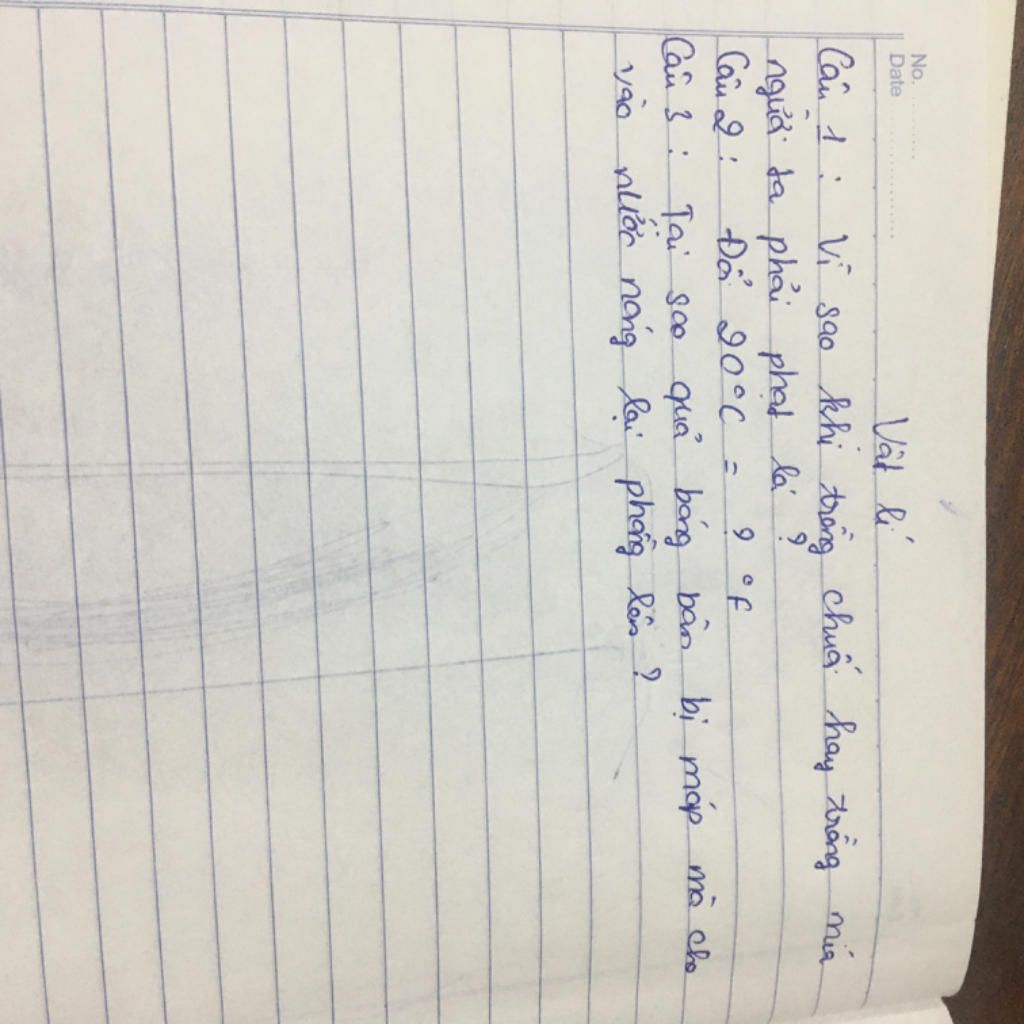 No. ..........
Date ....................
Vật lí
Câu 1 : Vì sao khi trồng chuối hay trồng mía
người ta phải phạt lá ?
Câu 2 : Đổi 20°C = ? °F
Câu 3 : Tại sao quả bóng bàn bị móp mà cho
vào nước nóng lại phồng lên ?